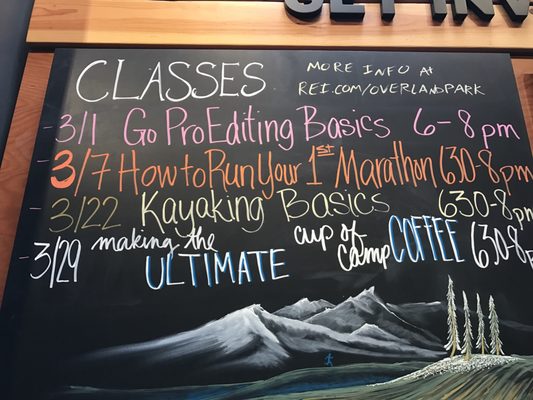 CLASSES
MORE INFO at
REI.COM/OVERLANDPARK
3/1 GoPro Editing Basics 6-8pm
3/7 How to Run Your 1st Marathon 630-8pm
3/22 Kayaking Basics 630-8pm
3/29 making the ULTIMATE cup of camp COFFEE 630-8p